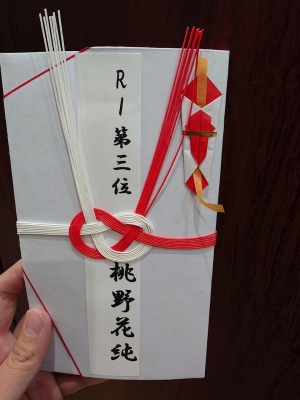 R1第三位
桃野花純